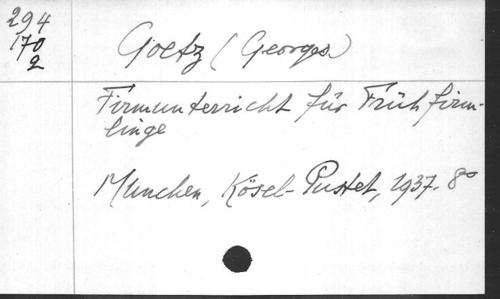 294
170
2
Goetz (Georges)
Firmunterricht für Frühfirm-
linge
München, Kösel-Pustet, 1937. 8°